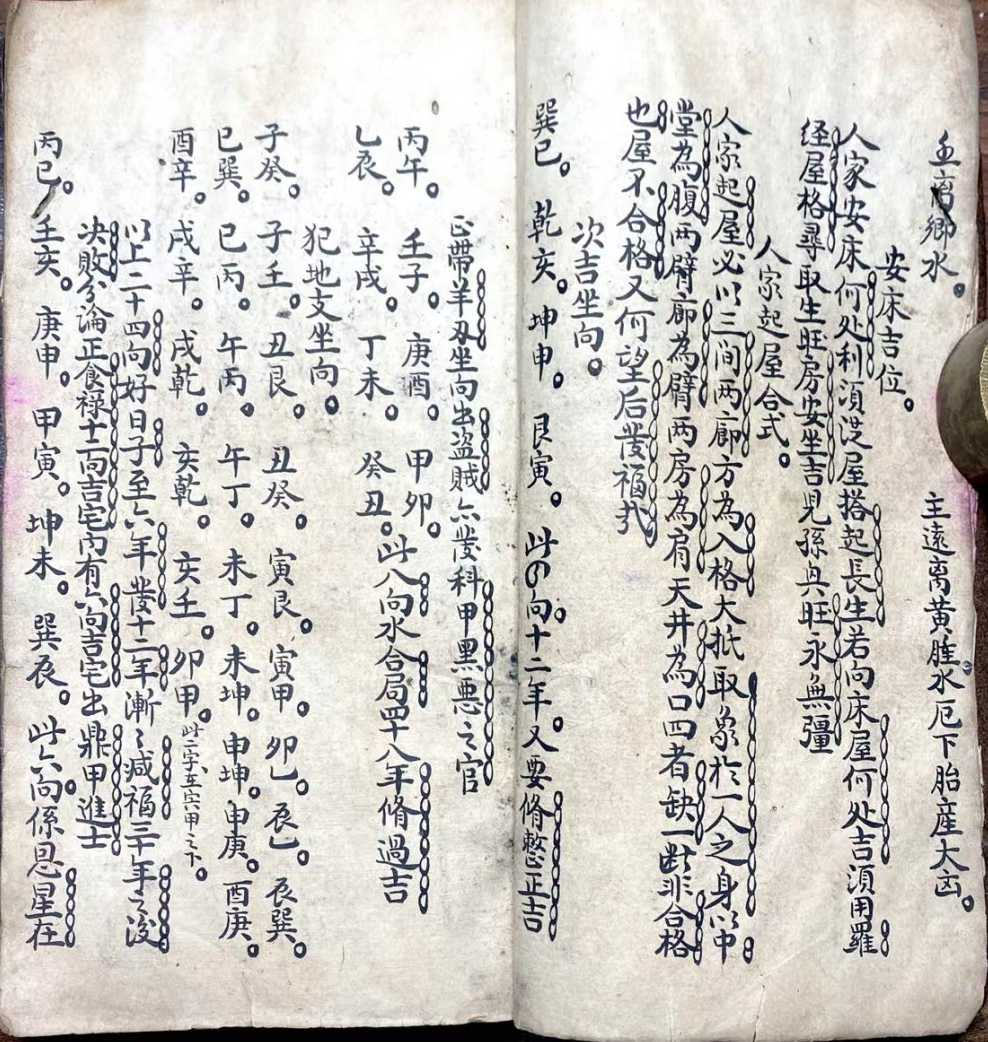 玉离鄉水。 主遠离黄腫水厄下胎産大凶。
安床吉位。
人家安床何处利須從屋搭起長生若向床屋何处吉須用羅
经屋格尋取生旺房安坐吉児孫兴旺永無彊
人家起屋合式。
人家起屋必以三间两廊方為入格大抵取象於一人之身以中
堂為腹两臂廊為臂两房為肩天井為口四者缺一断非合格
也屋不合格又何望后發福㢤
次吉坐向。
巽巳。 乾亥。 坤申。 艮寅。 此四向十二年。又要脩整正吉
正帶羊刃坐向出盗賊六發科甲黑悪之官
丙午。 壬子。 庚酉。 甲卯。
乙辰。 辛戌。 丁未。 癸丑。此八向水合局四十八年脩過吉
犯地支坐向。
子癸。 子壬。 丑艮。 丑癸。 寅艮。 寅甲。 卯乙。 辰乙。 辰巽。
巳巽。 巳丙。 午丙。 午丁。 未丁。 未坤。 申坤。 申庚。 酉庚。
酉辛。 戌辛。 戌乾。 亥乾。 亥壬。 卯甲。此二字在寅甲之下。
以上二十四向好日子至六年發十二年漸〻减福三十年之後
决敗分淪正食禄十二向吉宅内有六向吉宅出鼎甲進士
丙巳。 壬亥。 庚申。 甲寅。 坤未。 巽辰。 此六向係恩星在